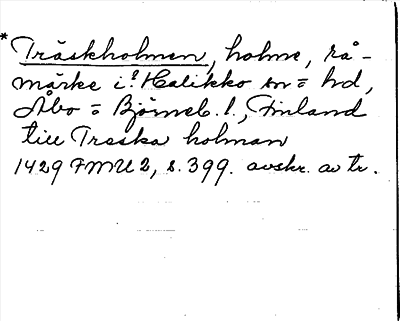 * Träskholmen, holme, rå-
märke i? Halikko sn = hd,
Åbo = Björneb. l., Finland
till Traska holman
1429 FMU 2, s. 399. avskr. av tr.